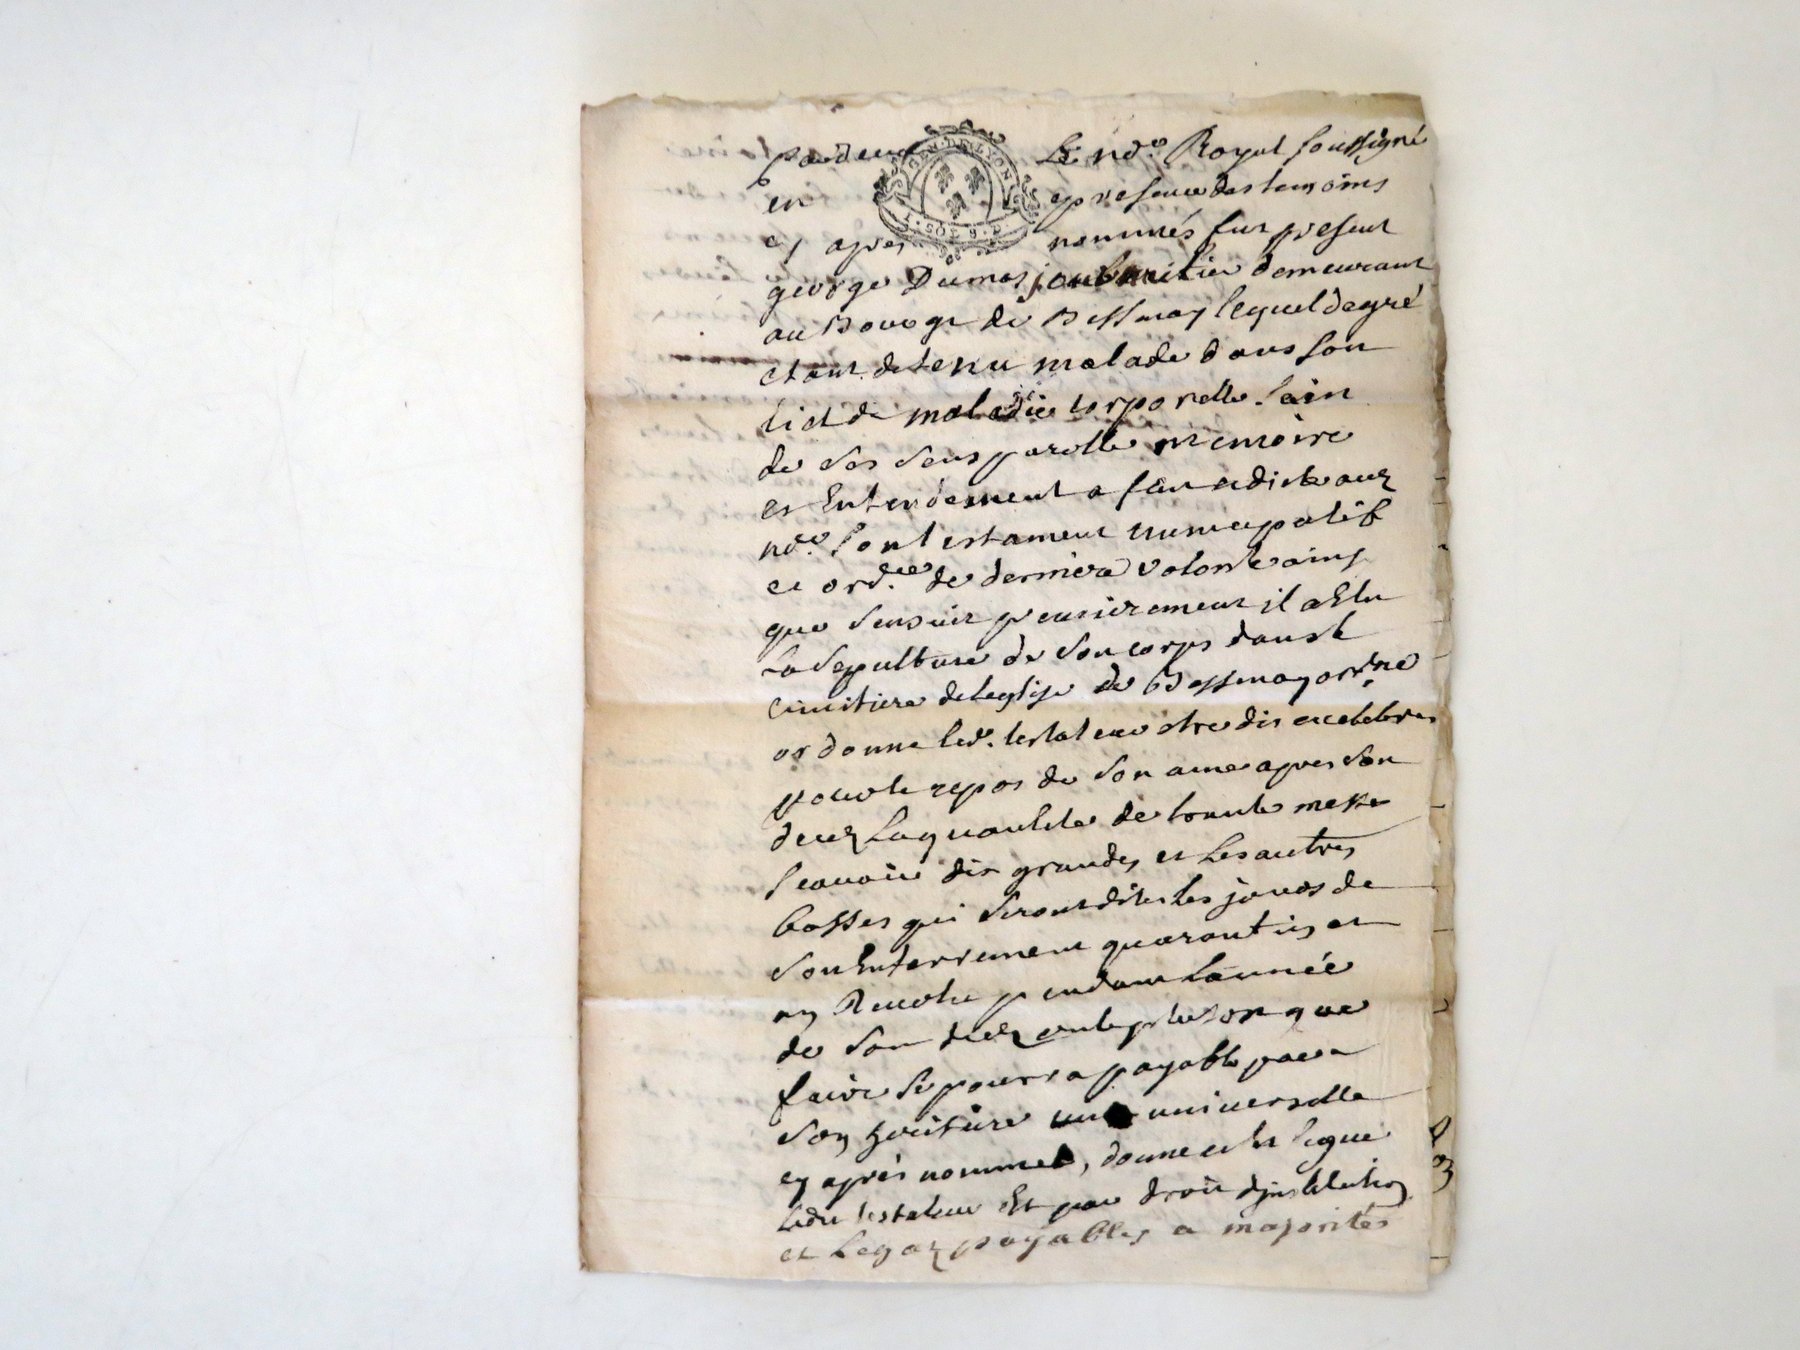 Pardevant Le no.re Royal soussigné
GEN. DE LYON
en presence des temoins
1. SOL 8. D.
cy apres nommés fut present
george Dumas joubaritier demeurant
au Bourgt de Bessenay lequel de gré
etant detenu malade dans son
lict de maladie corporelle sain
de ses sens parolle memoire
et Entendement a fait et dicté aud.
no.re son testament nuncupatif
et ord.ce de derniere volonte ainsy
que s'ensuit premierement il a Elu
La sepulture de son corps dans le
cimitiere de leglise de Bessenay
ordonne led. testateur etre dit et celebrer
pour le repos de son ame apres son
decez La quantité de trente messes
scavoir dix grandes et les autres
basses qui seront dites les jours de
son Enterrement quarantin et
an Revolu pendant L'année
de son decez ou le plutost que
faire se pourra payable par
son heritiere universelle
cy aprés nommée, donne et legue
Ledit testateur Et par droit d'institution
et Legaz payables a majorités